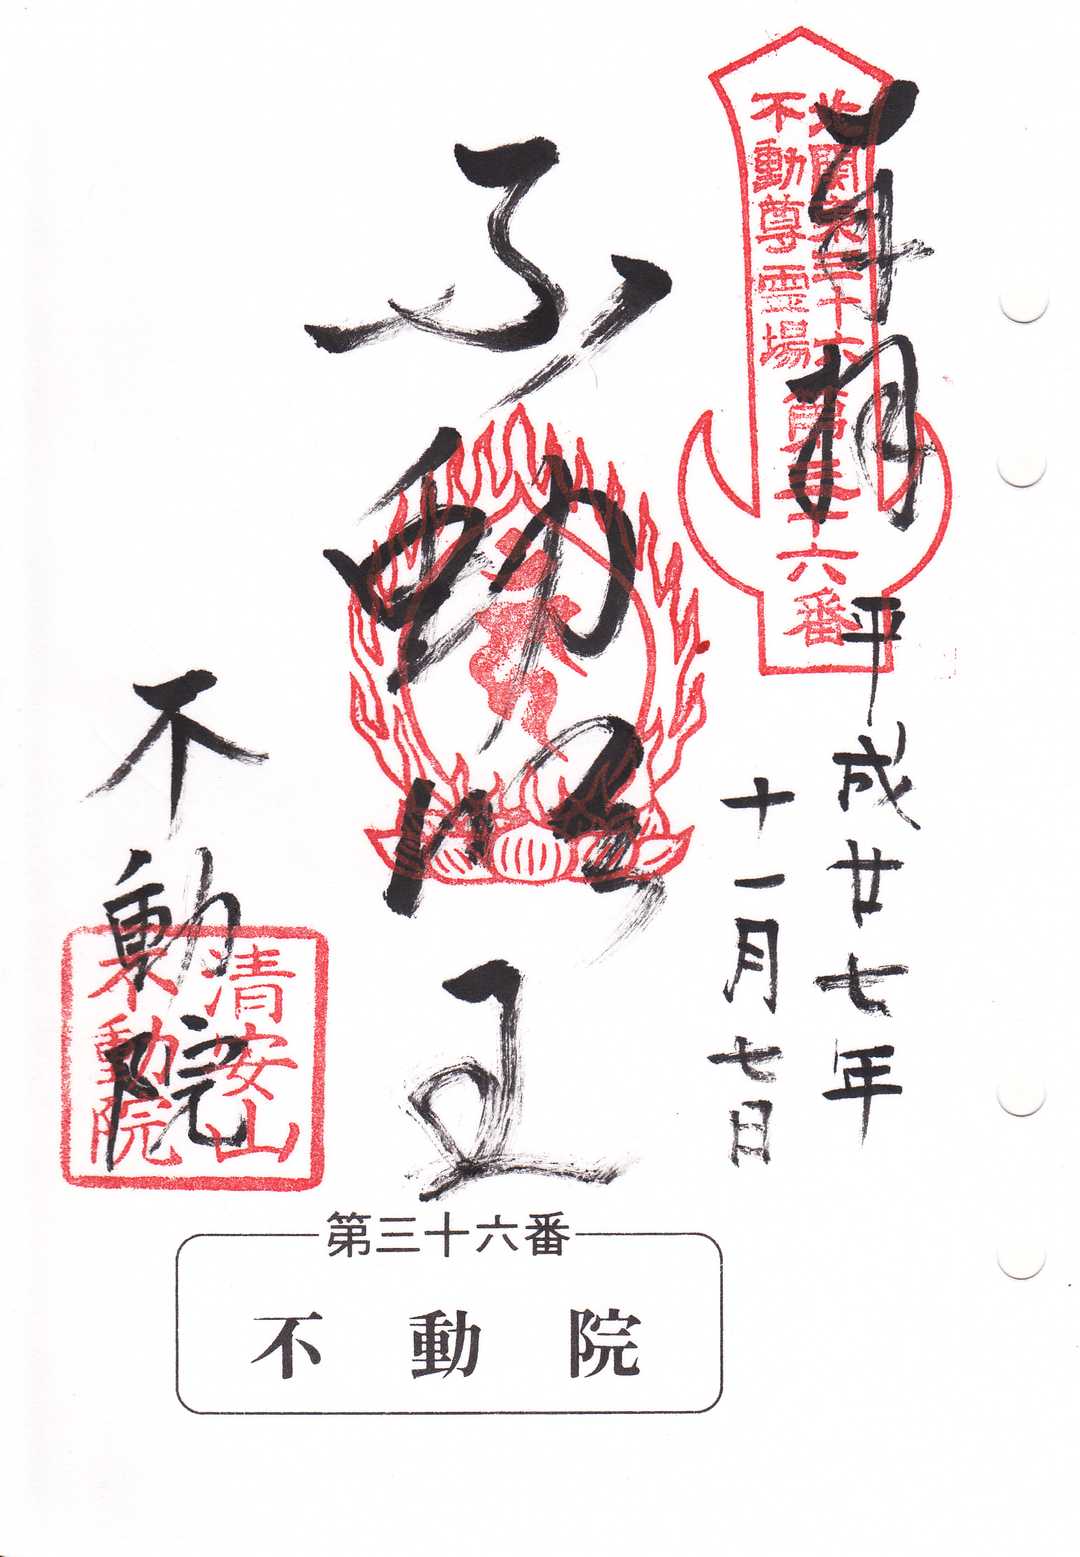 奉拝
北関東三十六
不動尊霊場
第三十六番
平成廿七年
十一月七日
不動明王
不動院
清安山
不動院
第三十六番
不動院